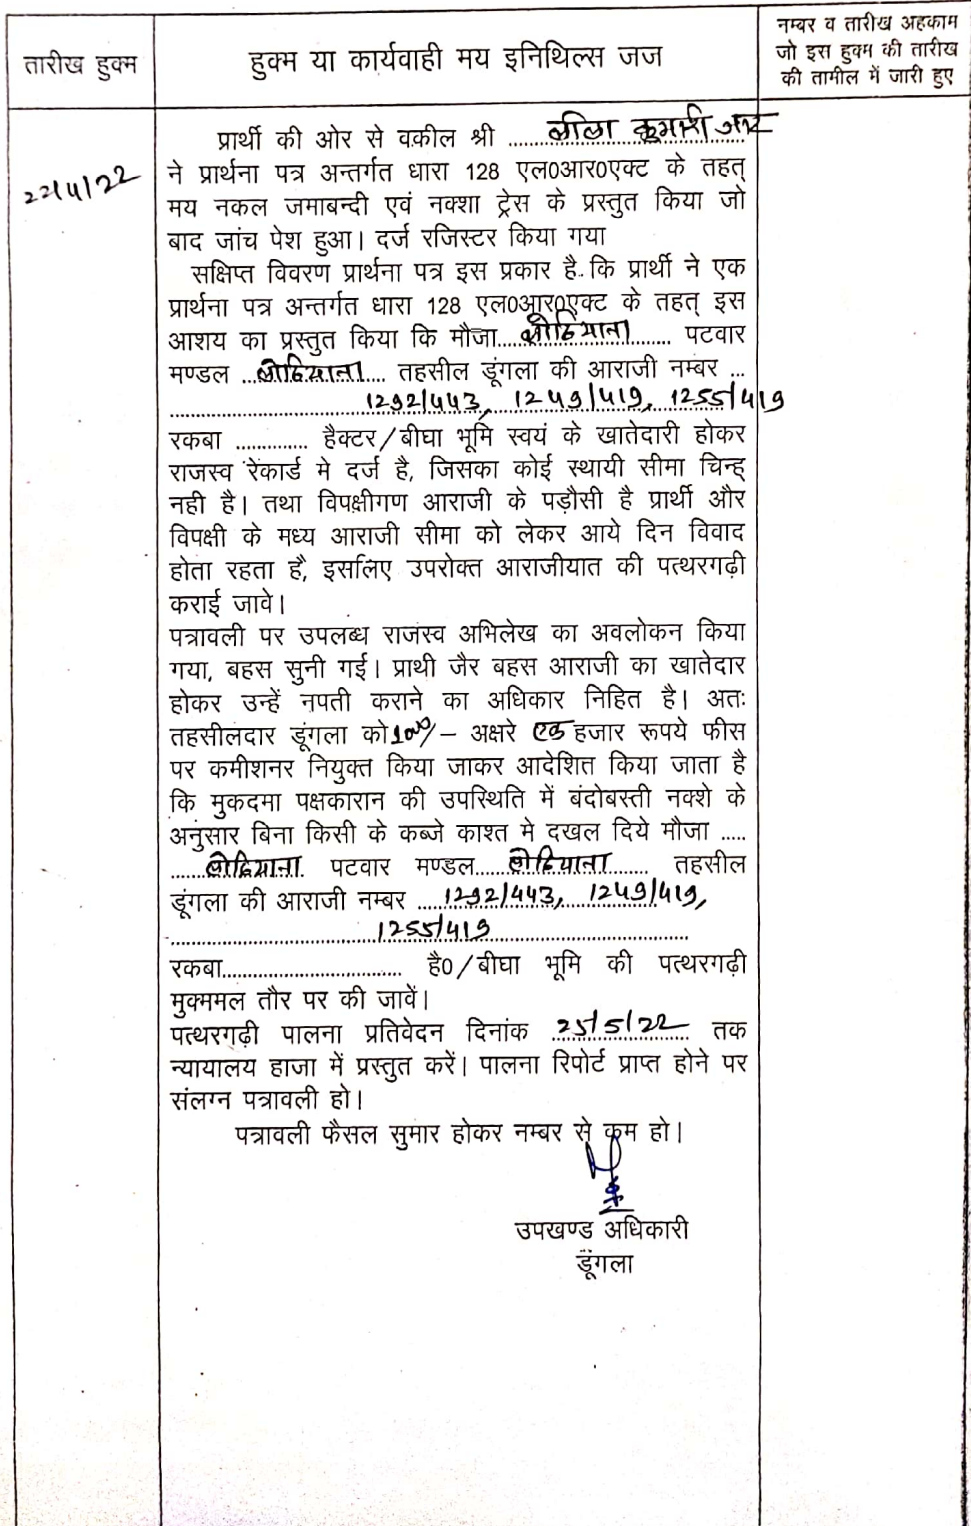 तारीख हुक्म
हुक्म या कार्यवाही मय इनिथिल्स जज
नम्बर व तारीख अहकाम
जो इस हुक्म की तारीख
की तामील में जारी हुए
22/4/22
प्रार्थी की ओर से वकील श्री ....लीला कुमारी जाट
ने प्रार्थना पत्र अन्तर्गत धारा 128 एल0आर0एक्ट के तहत्
मय नकल जमाबन्दी एवं नक्शा ट्रेस के प्रस्तुत किया जो
बाद जांच पेश हुआ। दर्ज रजिस्टर किया गया
सक्षिप्त विवरण प्रार्थना पत्र इस प्रकार है कि प्रार्थी ने एक
प्रार्थना पत्र अन्तर्गत धारा 128 एल0आर0एक्ट के तहत् इस
आशय का प्रस्तुत किया कि मौजा.... ........ पटवार
मण्डल .... .... तहसील डूंगला की आराजी नम्बर ...
1292/443, 1249/419, 1255/419
रकबा ............. हैक्टर/बीघा भूमि स्वयं के खातेदारी होकर
राजस्व रेकार्ड मे दर्ज है, जिसका कोई स्थायी सीमा चिन्ह्
नही है। तथा विपक्षीगण आराजी के पड़ौसी है प्रार्थी और
विपक्षी के मध्य आराजी सीमा को लेकर आये दिन विवाद
होता रहता है, इसलिए उपरोक्त आराजीयात की पत्थरगढ़ी
कराई जावे।
पत्रावली पर उपलब्ध राजस्व अभिलेख का अवलोकन किया
गया, बहस सुनी गई। प्राथी जैर बहस आराजी का खातेदार
होकर उन्हें नपती कराने का अधिकार निहित है। अतः
तहसीलदार डूंगला को 1000/- अक्षरे एक हजार रूपये फीस
पर कमीशनर नियुक्त किया जाकर आदेशित किया जाता है
कि मुकदमा पक्षकारान की उपस्थिति में बंदोबस्ती नक्शे के
अनुसार बिना किसी के कब्जे काश्त मे दखल दिये मौजा .....
...... पटवार मण्डल..... ...... तहसील
डूंगला की आराजी नम्बर ....1292/443, 1249/419,
1255/419
रकबा.................................. है0/बीघा भूमि की पत्थरगढ़ी
मुक्ममल तौर पर की जावें।
पत्थरगढ़ी पालना प्रतिवेदन दिनांक 25/5/22 तक
न्यायालय हाजा में प्रस्तुत करें। पालना रिपोर्ट प्राप्त होने पर
संलग्न पत्रावली हो।
पत्रावली फैसल सुमार होकर नम्बर से कम हो।
उपखण्ड अधिकारी
डूंगला